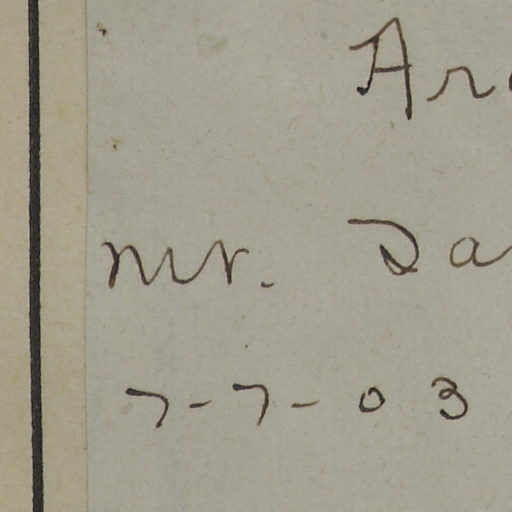 Ar
Mr. Da
7-7-03